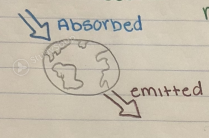 Absorbed
emitted